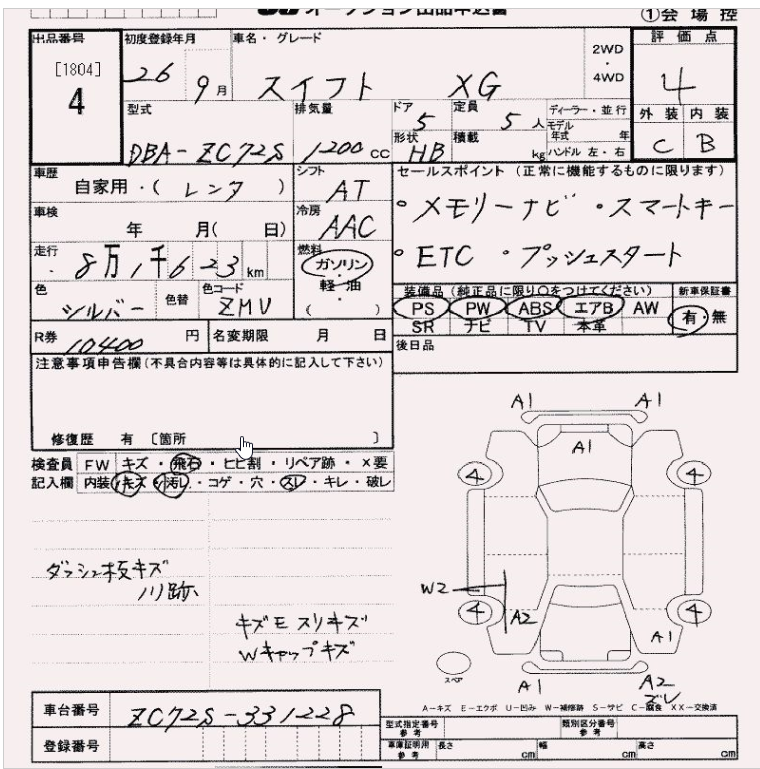 ①会場控
出品番号
[1804]
4
初度登録年月
26 9月
車名・グレード
スイフト XG
2WD
・
4WD
評価点
4
外装 内装
C B
型式
DBA-ZC72S
排気量
1200cc
ドア
5
定員
5人
ディーラー・並行
モデル年式 年
形状
HB
積載
kg
ハンドル 左・右
車歴
自家用・(レンタ)
シフト
AT
車検
年 月( 日)
冷房
AAC
走行
8万1千623km
燃料
ガソリン
・
軽油
・
( )
色
シルバー
色替
色コード
ZMV
R券
10400円
名変期限 月 日
セールスポイント(正常に機能するものに限ります)
・メモリーナビ ・スマートキー
・ETC ・プッシュスタート
装備品(純正品に限り〇をつけてください)
PS PW ABS エアB AW
SR ナビ TV 本革
新車保証書
有・無
後日品
注意事項申告欄(不具合内容等は具体的に記入して下さい)
修復歴 有 [箇所 ]
検査員 FW キズ・飛石・ヒビ割・リペア跡・×要
記入欄 内装 キズ・汚レ・コゲ・穴・スレ・キレ・破レ
ダッシュ板キズ
ノリ跡
キズモ スリキズ
Wキャップキズ
A1 A1
A1
4 4
W2
A2
4 4
A1
スペア
A1
A2
ズレ
A-キズ E-エクボ U-凹み W-補修跡 S-サビ C-腐食 XX-交換済
車台番号
ZC72S-331228
登録番号
型式指定番号
参考
類別区分番号
参考
車庫証明用
参考
長さ cm
幅 cm
高さ cm